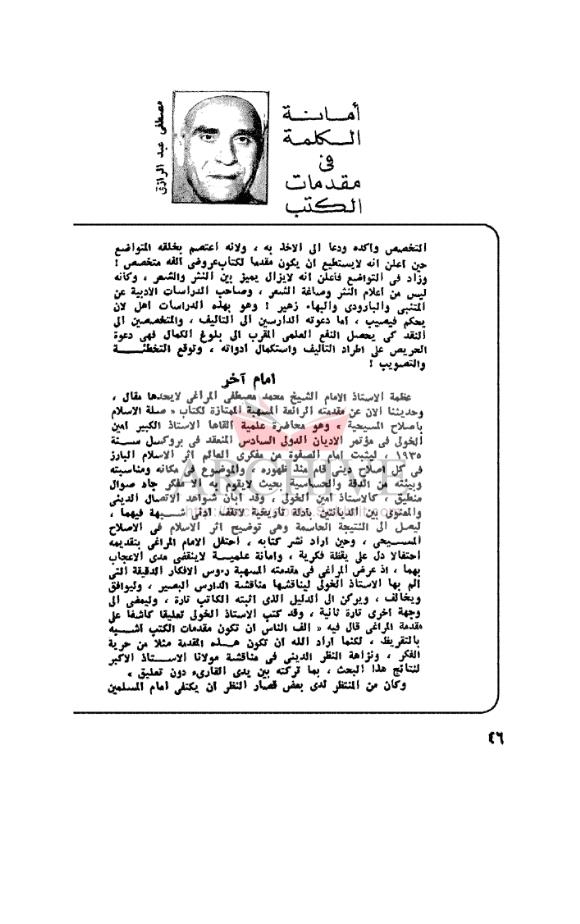 أمانة
الكلمة
في
مقدمات
الكتب
مصطفى عبد الرازق
التخصص وأكده ودعا الى الاخذ به ، ولانه اعتصم بخلقه المتواضع
حين اعلن انه لايستطيع ان يكون مقدما لكتاب عروضى الفه متخصص !
وزاد فى التواضع فأعلن انه لايزال يميز بين النثر والشعر ، وكأنه
ليس من اعلام النثر وصاغة الشعر ، وصاحب الدراسات الادبية عن
المتنبى والبارودى والبهاء زهير ! وهو بهذه الدراسات اهل لان
يحكم فيصيب ، اما دعوته الدارسين الى التاليف ، والمتخصصين الى
النقد كى يحصل النفع العلمى المقرب الى بلوغ الكمال فهى دعوة
الحريص على اطراد التأليف واستكمال أدواته ، وتوقع التخطئـــة
والتصويب !
امام آخر
عظمة الاستاذ الامام الشيخ محمد مصطفى المراغى لايحدها مقال ،
وحديثنا الان عن مقدمته الرائعة المسهبة الممتازة لكتاب « صلة الاسلام
باصلاح المسيحية » وهو محاضرة علمية القاها الاستاذ الكبير امين
الخولى فى مؤتمر الاديان الدولى السادس المنعقد فى بروكسل سـنة
١٩٣٥ ، ليثبت امام الصفوة من مفكرى العالم اثر الاسلام البارز
فى كل اصلاح دينى منذ ظهوره ، والموضوع فى مكانه ومناسبته
وبيئته من الدقة والحساسية بحيث لايقوم به الا مفكر جاد صوال
منطيق ، كالاستاذ امين الخولى ، وقد ابان شواهد الاتصال الدينى
والمعنوى بين الديانتين بادلة تاريخية لاتقف ادنى شـبهة فيهما ،
ليصل الى النتيجة الحاسمة وهى توضيح اثر الاسلام فى الاصلاح
المسـيحى ، وحين اراد نشر كتابه ، احتفل الامام المراغى بتقديمه
احتفالا دل على يقظة فكرية ، وامانة علميـة لاينقضى مدى الاعجاب
بهما ، اذ عرض المراغى فى مقدمته المسهبة رءوس الافكار الدقيقة التى
الم بها الاستاذ الخولى ليناقشها مناقشة الدارس البصير ، وليوافق
ويخالف ، ويركن الى الدليل الذى اثبته الكاتب تارة ، وليمضى الى
وجهة اخرى تارة ثانية ، وقد كتب الاستاذ الخولى تعليقا كاشفا على
مقدمة المراغى قال فيه « الف الناس ان تكون مقدمات الكتب اشـبه
بالتقريظ ، لكنما اراد الله ان تكون هـذه المقدمة مثلا من حرية
الفكر ، ونزاهة النظر الدينى فى مناقشة مولانا الاسـتاذ الاكبر
لنتائج هذا البحث ، بما تركته بين يدى القارىء دون تعليق »
وكان من المنتظر لدى بعض قصار النظر ان يكتفى امام المسلمين
٤٦
ARCHIVE